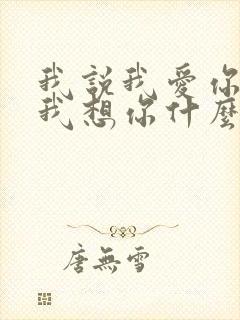 我說我愛你
我想你什麼
唐無雪